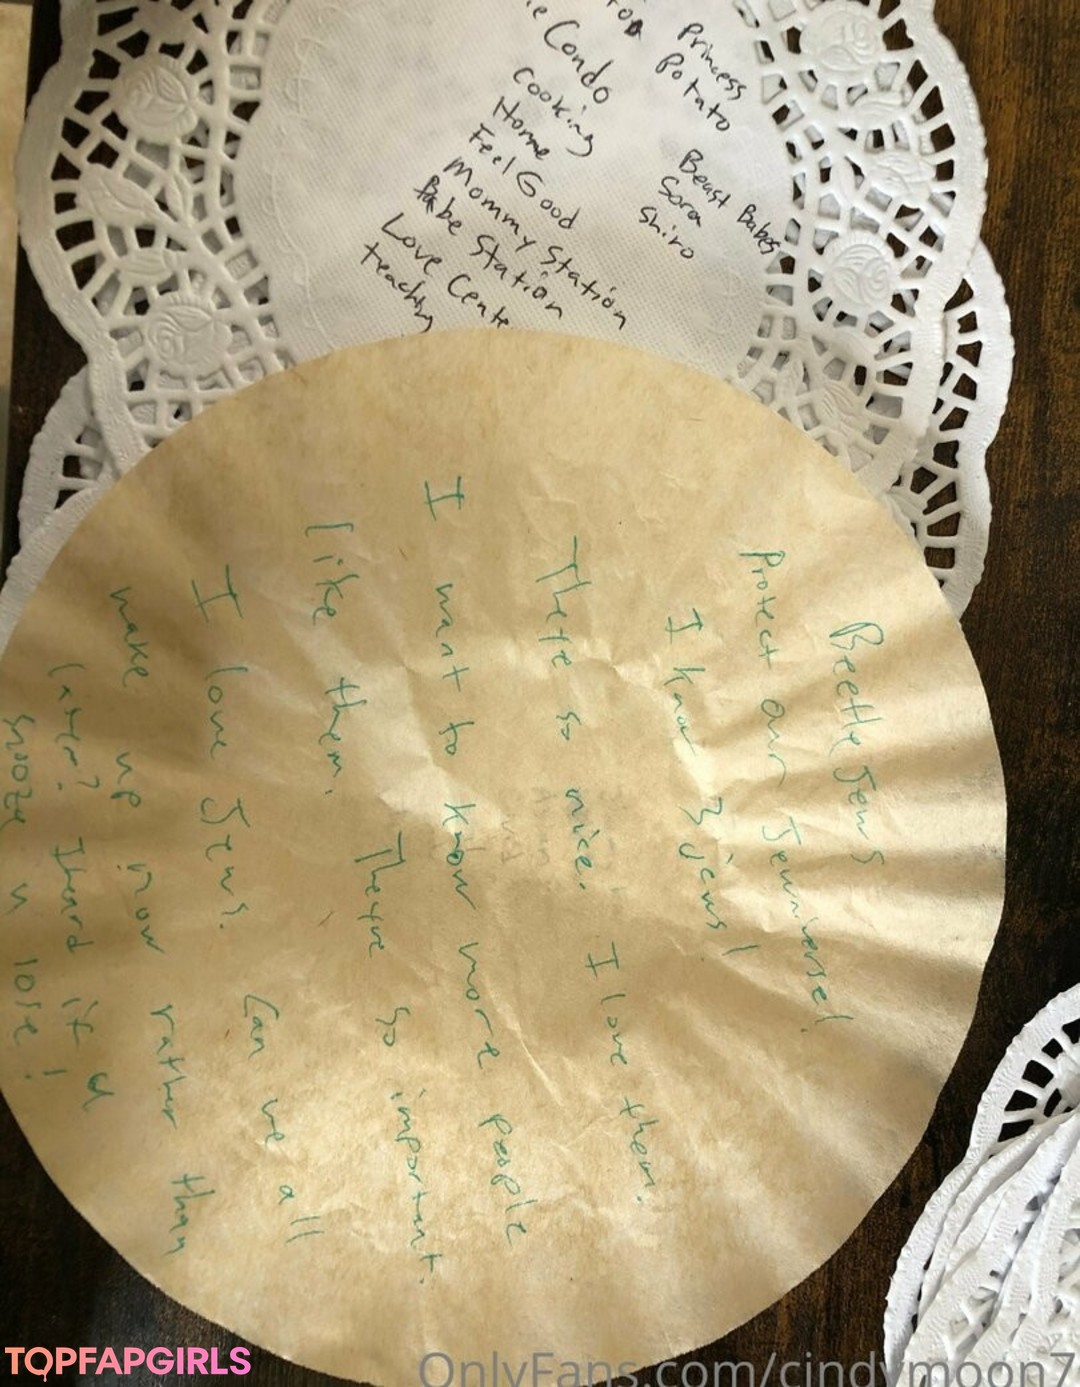 e Condo
Cooking
Home
Feel Good
Mommy Station
Babe Station
Love Cente
teaching
Princess
Potato
Beast Babes
Sora
Shiro
Beetle Jews
Protect our Jewniverse!
I know 3 jews!
There so nice. I love them.
I want to know more people
like them. Theyre so important.
I love Jews. Can we all
make up now rather than
later? I heard if u
snooze u lose!
TOPFAPGIRLS
OnlyFans.com/cindymoon7